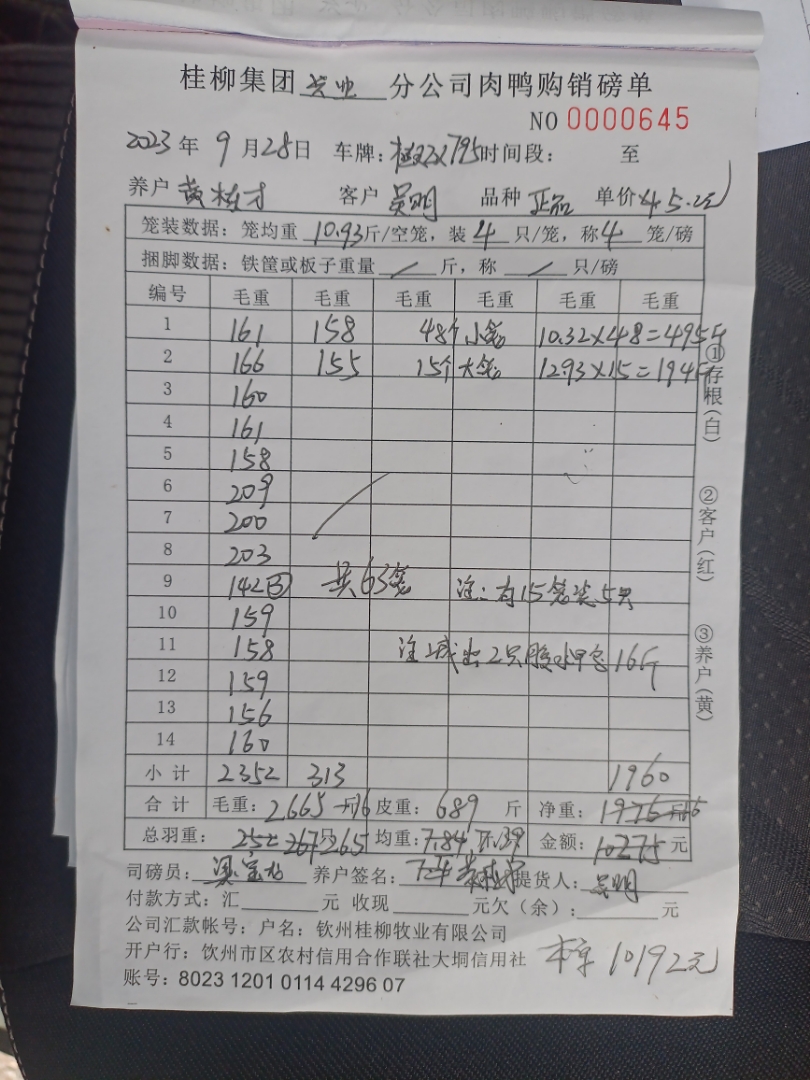 桂柳集团 兴业 分公司肉鸭购销磅单
NO 0000645
2023年 9月28日 车牌: 795时间段: 至
养户 黄栋才 客户 吴明 品种 正品 单价 5.2元
笼装数据: 笼均重 10.93斤/空笼, 装 4 只/笼, 称 4 笼/磅
捆脚数据: 铁筐或板子重量 / 斤, 称 / 只/磅
编号 毛重 毛重 毛重 毛重 毛重 毛重
1 161 158 48个 小笼 10.32×48=495斤
2 166 155 15个 大笼 12.93×15=194斤
3 160
4 161
5 158
6 209
7 200
8 203
9 142③ 共63笼 注:有15笼装5只
10 159
11 158 注:减出2只 16斤
12 159
13 156
14 160
小计 2352 313 1960
合计 毛重: 2665 皮重: 689 斤 净重: 1976
总羽重: 252 267只 265 均重: 7.84 7.39 金额: 10275 元
司磅员: 养户签名: 提货人: 吴明
付款方式: 汇 元 收现 元欠(余): 元
公司汇款帐号: 户名: 钦州桂柳牧业有限公司
开户行: 饮州市区农村信用合作联社大垌信用社
账号: 8023 1201 0114 4296 07
10192元
①存根(白)
②客户(红)
③养户(黄)